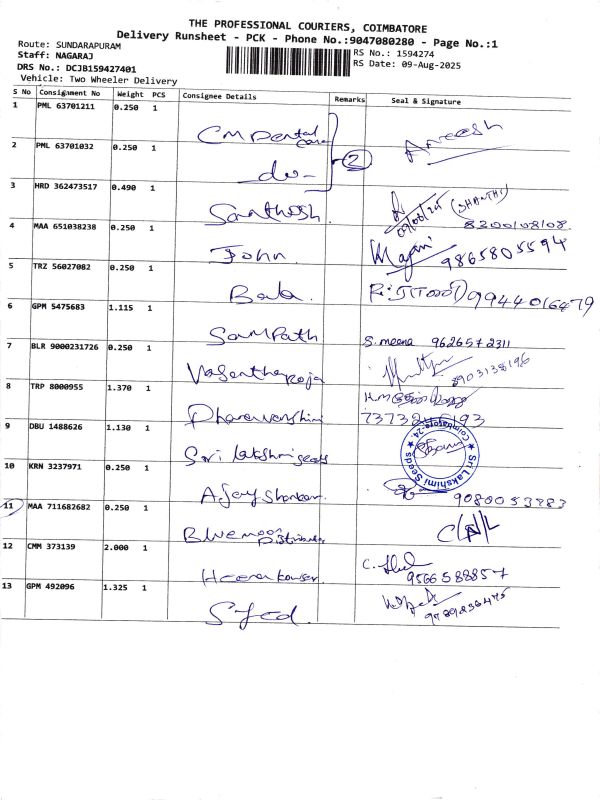 THE PROFESSIONAL COURIERS, COIMBATORE
Delivery Runsheet - PCK - Phone No.:9047080280 - Page No.:1
Route: SUNDARAPURAM
Staff: NAGARAJ
DRS No.: DCJB159427401
Vehicle: Two Wheeler Delivery
RS No.: 1594274
RS Date: 09-Aug-2025
S No Consignment No Weight PCS Consignee Details Remarks Seal & Signature
1 PML 63701211 0.250 1 CM Dental care Aneesh
2 PML 63701032 0.250 1 -do- 2
3 HRD 362473517 0.490 1 Santhosh 09/08/25 (SHANTHI) 8200108108
4 MAA 651038238 0.250 1 John 9865805594
5 TRZ 56027082 0.250 1 Bala 9944016479
6 GPM 5475683 1.115 1 Sampath S. meena 9626572311
7 BLR 9000231726 0.250 1 Vasantha Roja 8903138196
8 TRP 8000955 1.370 1 Dharavarshini
9 DBU 1488626 1.130 1 Sri Lakshmi seeds Sri Lakshmi Seeds Coimbatore-24
10 KRN 3237971 0.250 1 Ajay Shankar 9080053283
11 MAA 711682682 0.250 1 Bluemoon Distributor C/N/L
12 CMM 373139 2.000 1 Heena kouser 9566588857
13 GPM 492096 1.325 1 Syed